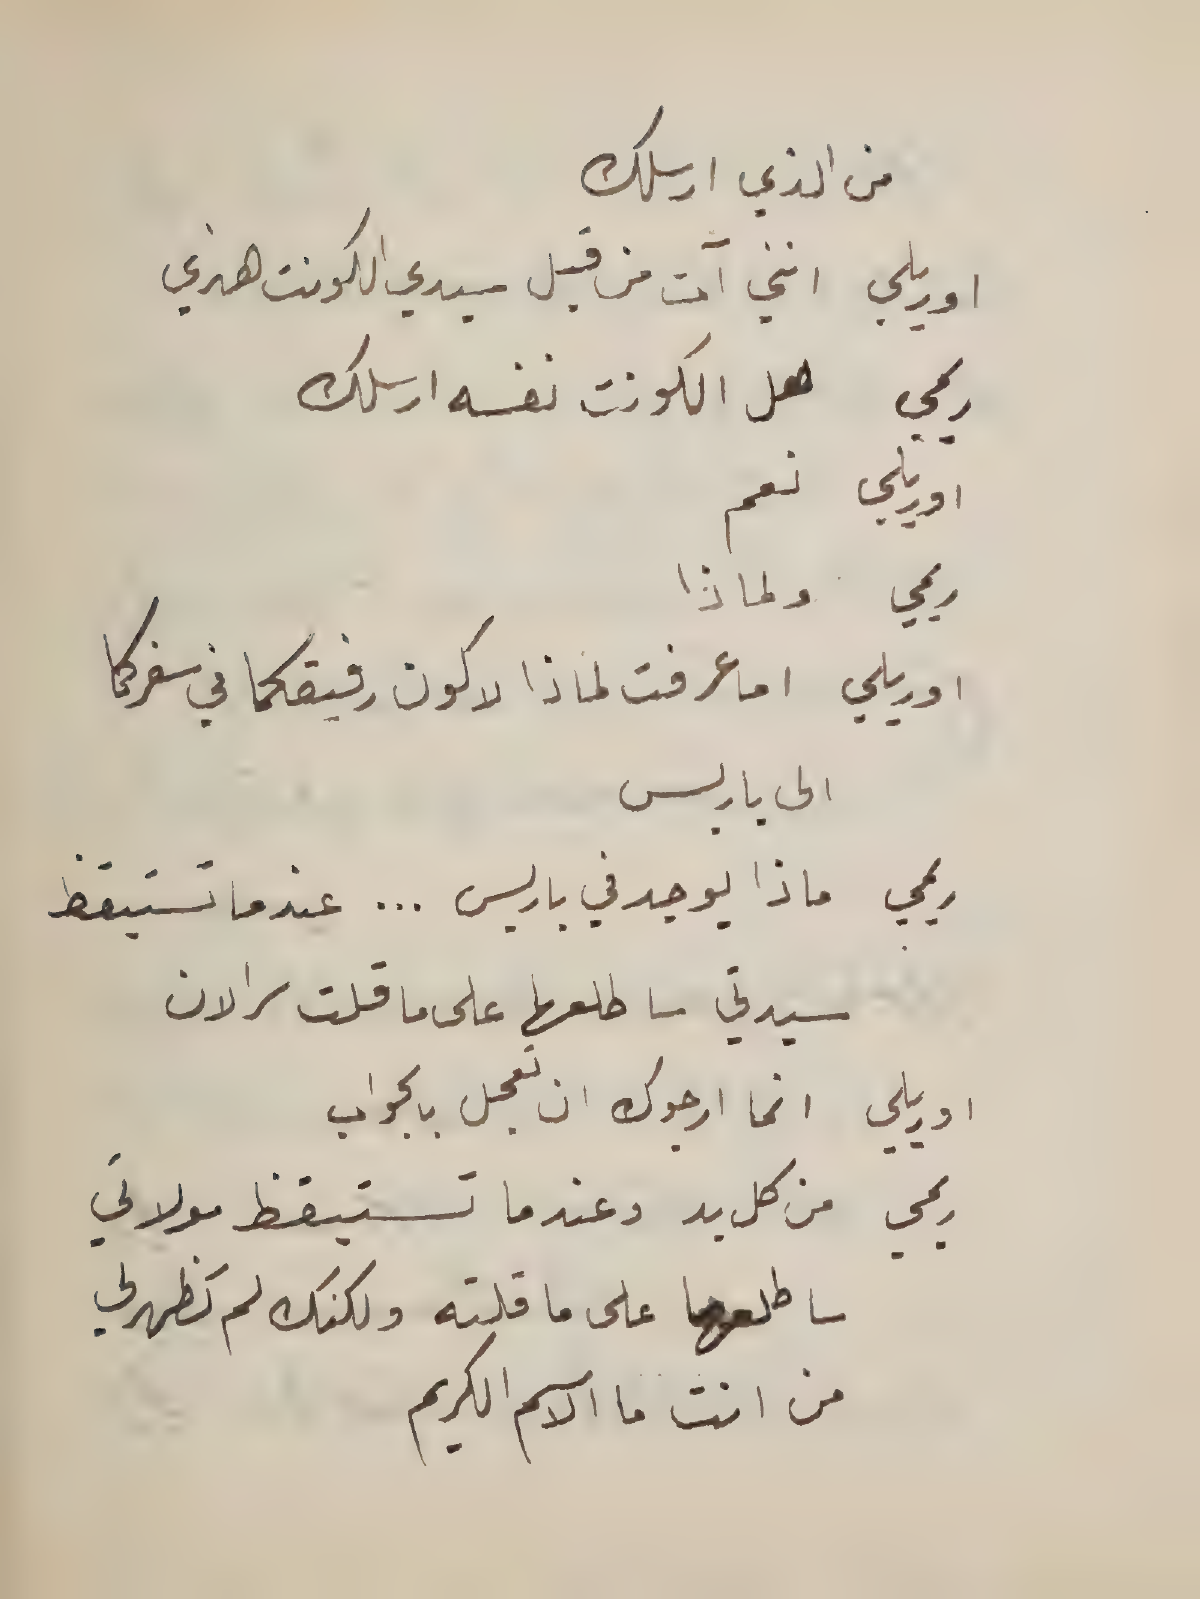 من الذي ارسلك
اوريلي انني آت من قبل سيدي الكونت هنري
ريمي هل الكونت نفسه ارسلك
اوريلي نعم
ريمي ولماذا
اوريلي اما عرفت لماذا لاكون رفيقكما في سفركما
الى باريس
ريمي ماذا يوجد في باريس ... عندما تستيقظ
سيدتي ساطلعها على ما قلت سرالان
اوريلي انما ارجوك ان تعجل بالجواب
ريمي من كل بد وعندما تستيقظ مولاتي
ساطلعها على ما قلته ولكنك لم تظهر لي
من انت ما الاسم الكريم